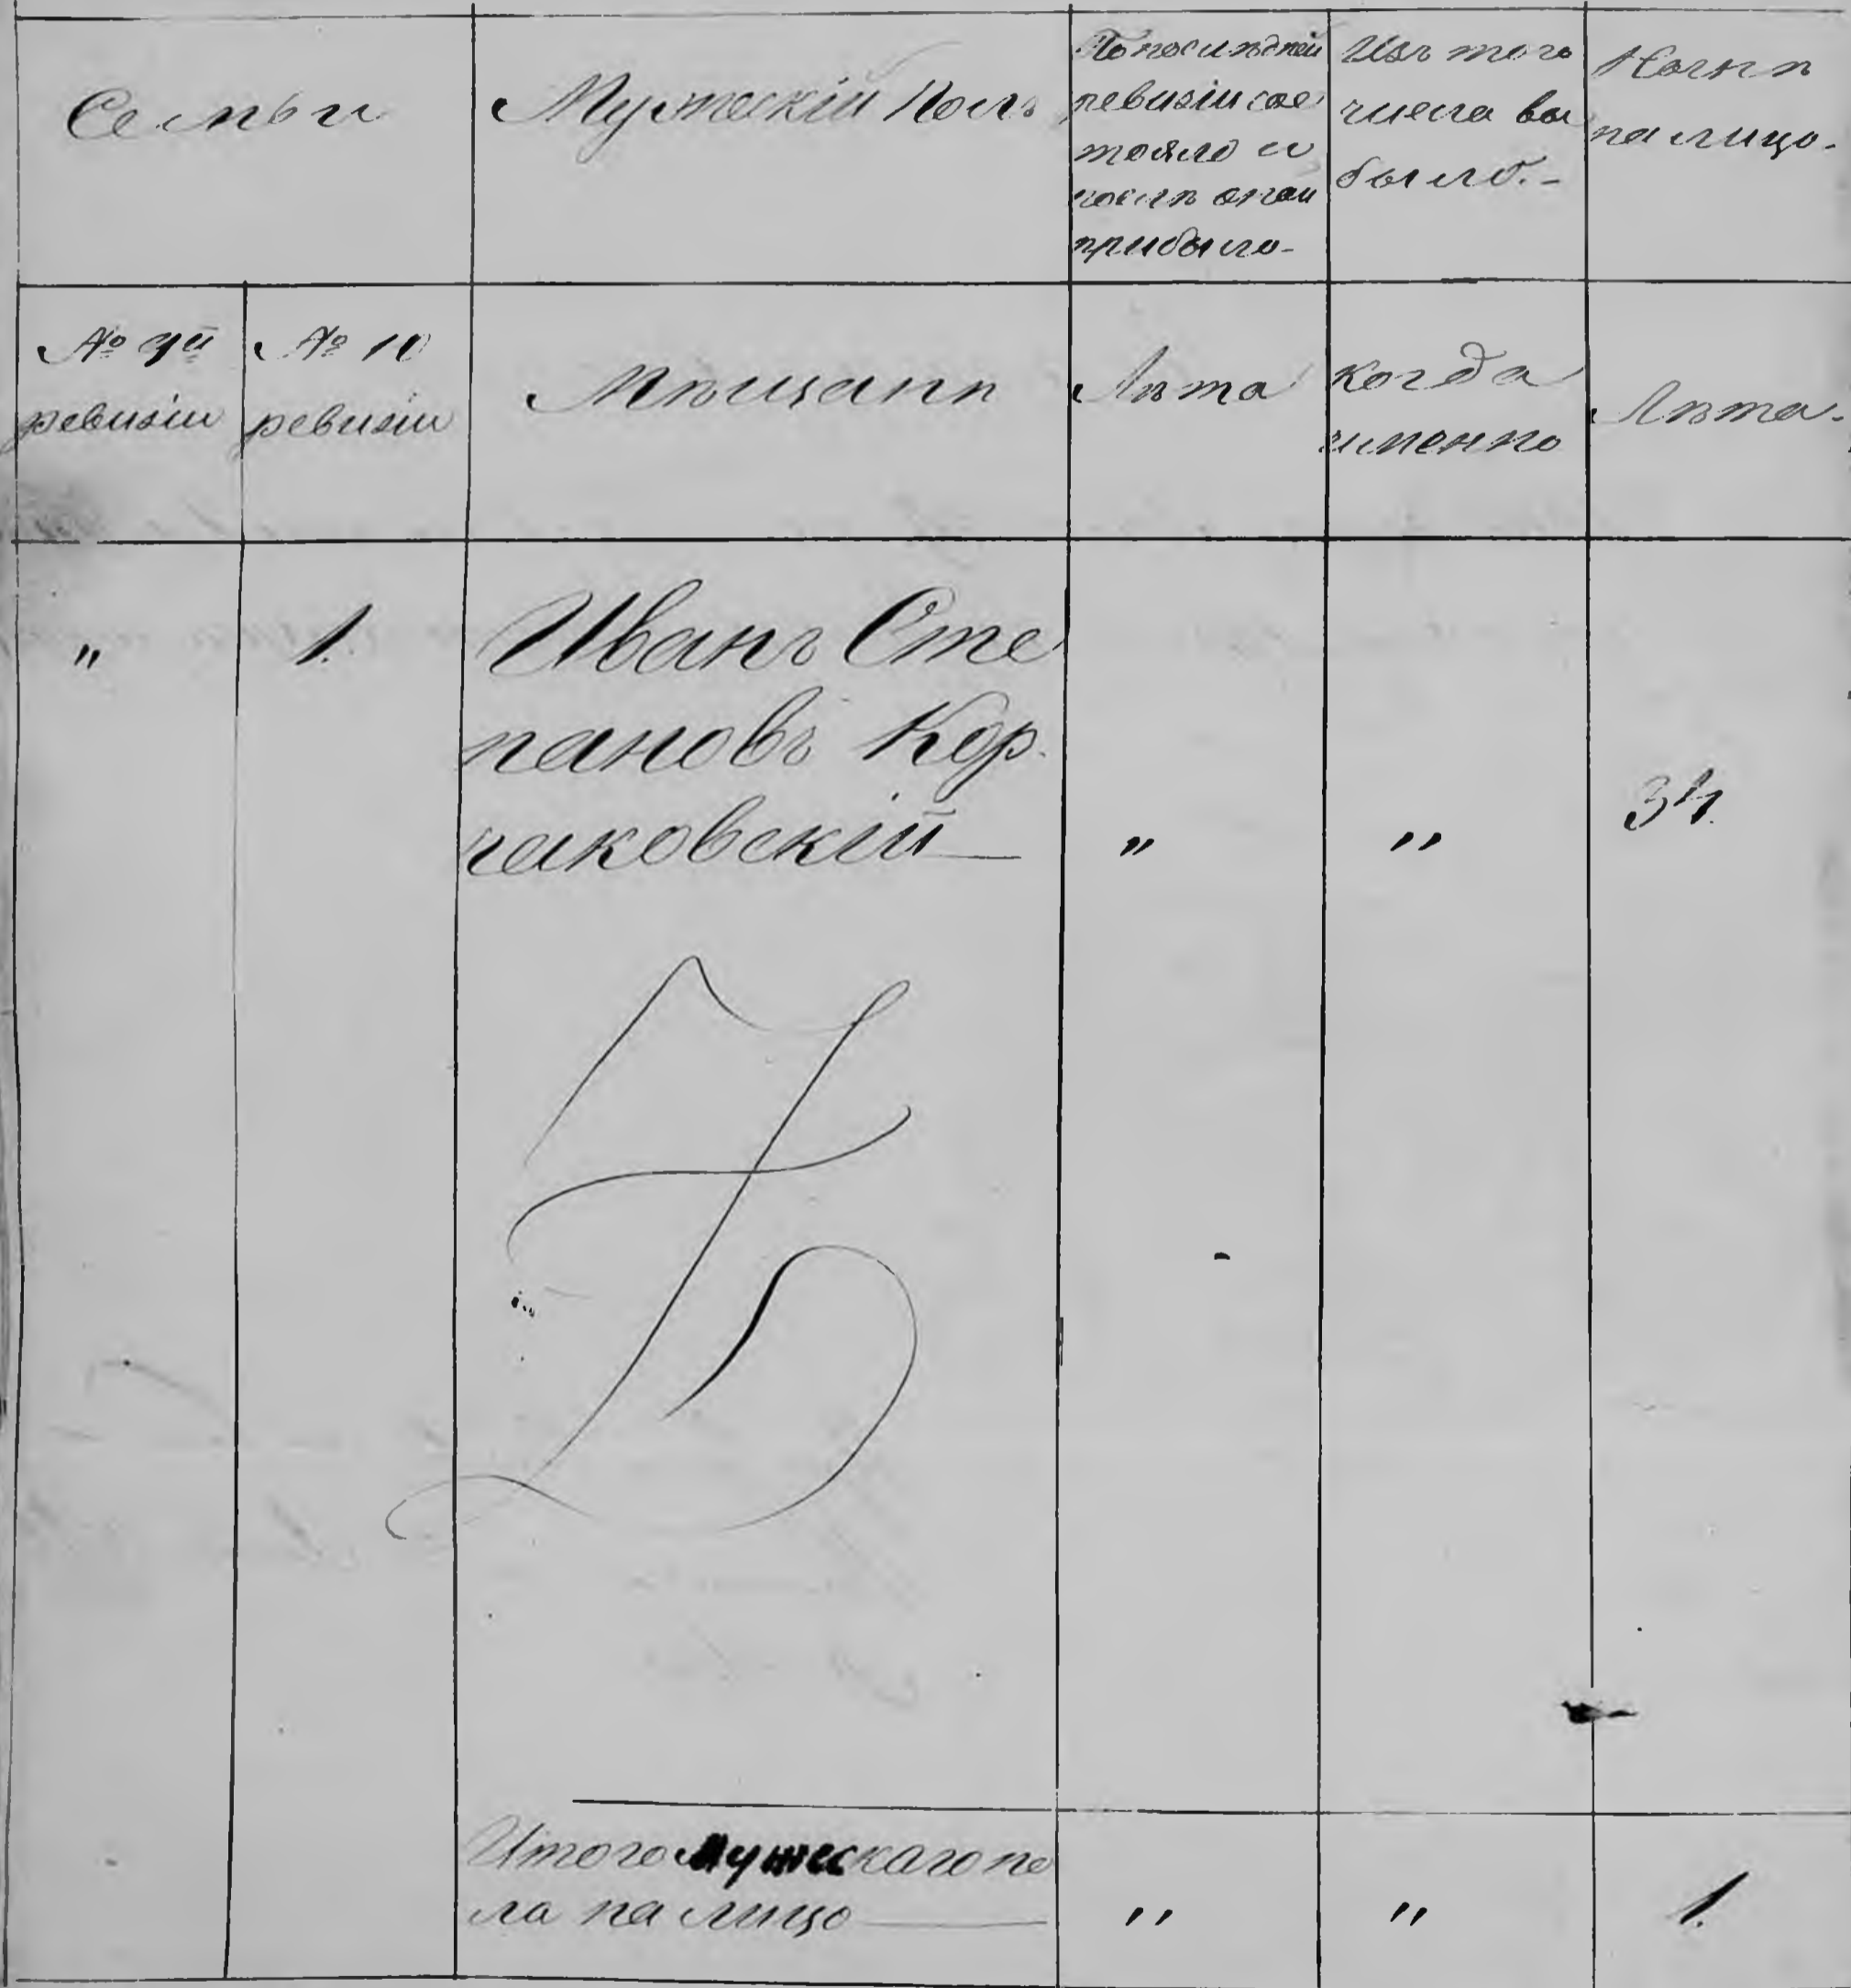 Семьи
Мужескій Полъ
По послѣдней
ревизіи сос
тояло и
послѣ оной
прибыло-
Изъ того
числа вы
было.-
Нынѣ
на лицо.
№ 9й
ревизіи
№ 10
ревизіи
Мѣщанѣ
Лѣта
когда
именно
Лѣта.
"
1.
Иванъ Сте
пановъ Кор-
чаковскій
"
"
34.
Итого мужескаго по
ла на лицо
"
"
1.